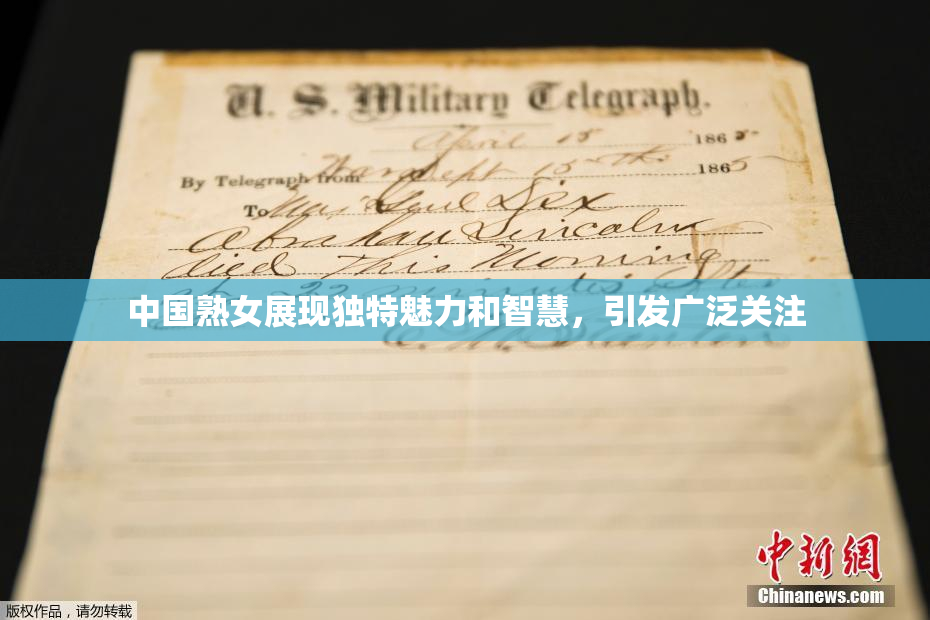 U. S. Military Telegraph.
April 15 1865
By Telegraph from War Dept 15th 1865
To Maj Genl Dix
Abraham Lincoln
died This Morning
at 22 minutes after
中国熟女展现独特魅力和智慧，引发广泛关注
E. M. Stanton
中新网
Chinanews.com
版权作品，请勿转载